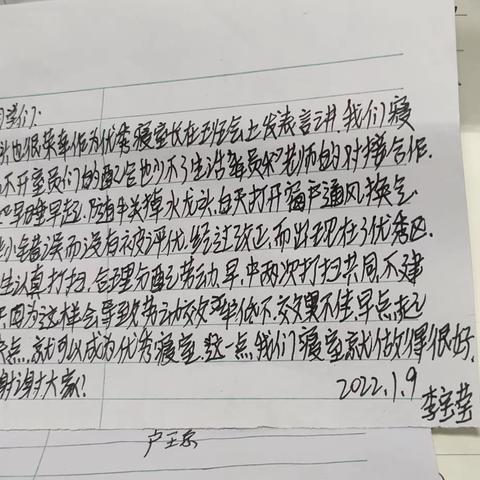 同学们:
也很荣幸作为优秀寝室长在班会上发表言讲.我们寝
不开室员们的配合也少不了生活辅员和老师的对接合作.
早睡早起.随手关掉水龙头.白天打开窗户通风换气.
些小错误而没有被评优.经过改正.而出现在了优秀区.
生认真打扫.合理分配劳动.早.中两次打扫共同.不建
因为这样会导致劳动效率低下.效果不佳.早点起
点.就可以成为优秀寝室.这一点我们寝室就做得很好.
谢谢大家!
2022.1.9
李宝莹
卢玉